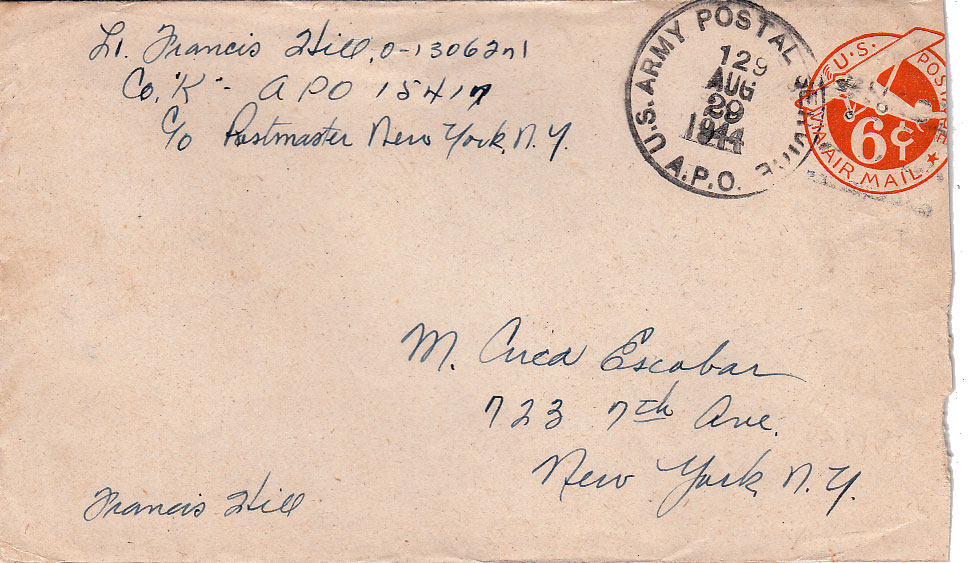 Lt. Francis Hill, O-1306271
Co. "K" - APO 15417
c/o Postmaster New York, N.Y.
U.S. ARMY POSTAL SERVICE
129
AUG
29
1944
A.P.O.
U.S. POSTAGE
6¢
VIA AIR MAIL
M. Escobar
723 7th Ave.
New York, N.Y.
Francis Hill